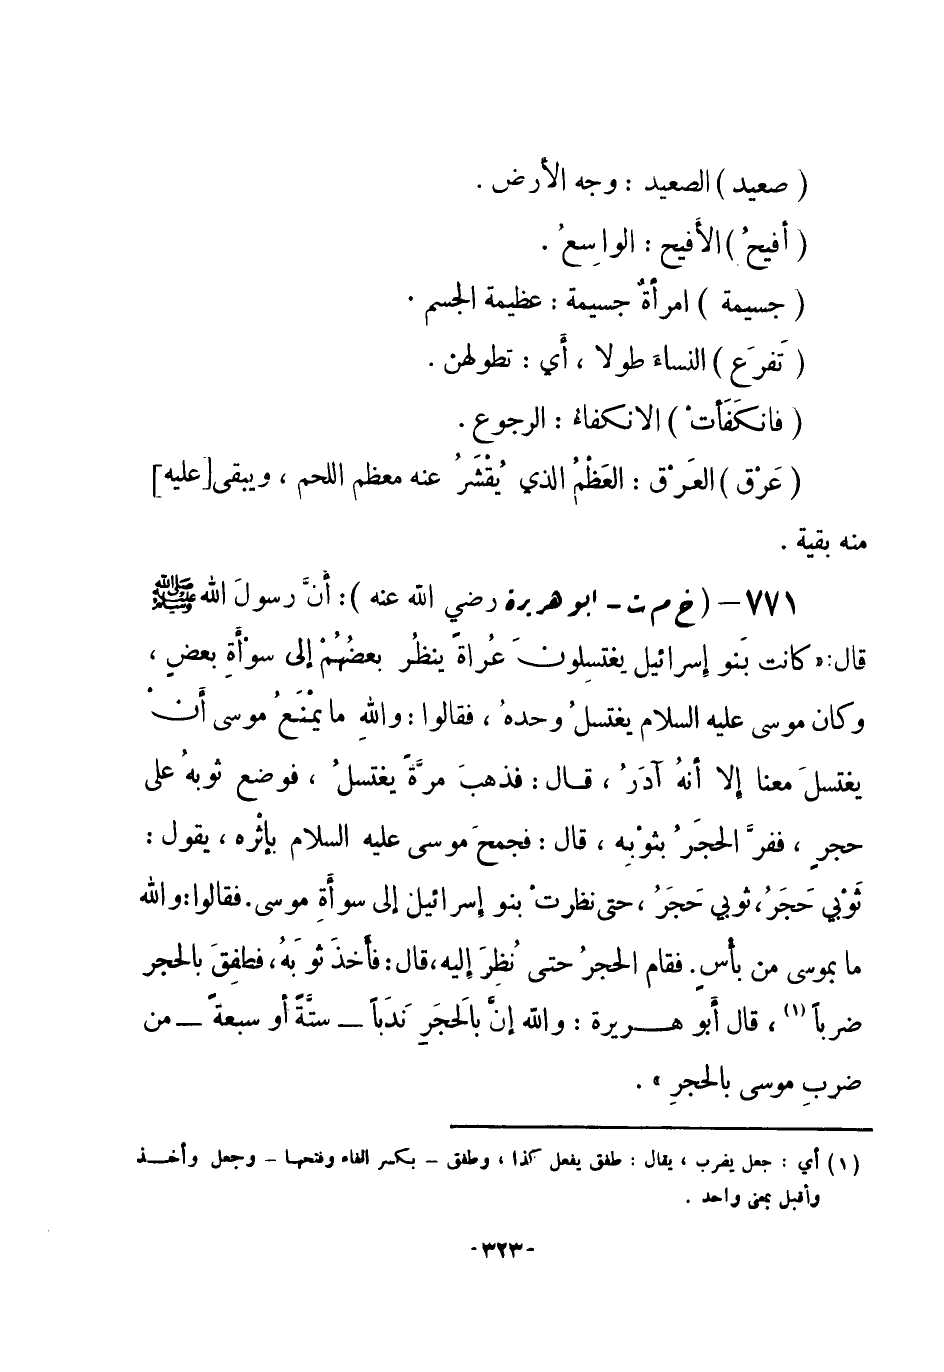 ( صعيد ) الصعيد : وجه الأرض .
( أفيحُ ) الأَفيح : الواسِعُ .
( جسيمة ) امرأةٌ جسيمة : عظيمة الجسم .
( تَفرَع ) النساءَ طولا ، أَي : تطولهن .
( فانكَفَأَتْ ) الانكفاءُ : الرجوع .
( عَرْق ) العَرْق : العَظْمُ الذي يُقْشَرُ عنه معظم اللحم ، ويبقى [عليه]
منه بقية .
٧٧١ – ( خ م ت - ابو هريرة رضي الله عنه ) : أَنَّ رسولَ الله ﷺ
قال : « كانت بَنو إسرائيل يغتسِلونَ عُراةً ينظُر بعضُهُمْ إلى سوْأَةِ بعضٍ ،
وكان موسى عليه السلام يغتسلُ وحدهُ ، فقالوا : واللهِ ما يمْنَعُ موسى أَنْ
يغتسلَ معنا إلا أنهُ آدَرُ ، قال : فذهبَ مرَّةً يغتسلُ ، فوضع ثوبهُ على
حجرٍ ، ففرَّ الحجَرُ بثوْبِه ، قال : فجمحَ موسى عليه السلام بإثْره ، يقول :
ثَوْبي حَجَرُ، ثوبي حَجَرُ ، حتى نظرتْ بنو إسرائيل إلى سوأَةِ موسى. فقالوا: والله
ما بموسى من بأْسٍ. فقام الحجرُ حتى نُظِرَ إليه، قال: فأَخذَ ثوبَهُ، فطفِقَ بالحجر
ضرباً (١) ، قال أَبو هـريرة : والله إنَّ بالَحجَرِ نَدَباً ــ ستَّةً أو سبعةً ــ من
ضربِ موسى بالحجرِ » .
(١) أي : جعل يضرب ، يقال : طفق يفعل كذا ، وطفق – بكسر الفاء وفتحها – وجعل وأخـذ
وأقبل بمعنى واحد .
-٣٢٣-